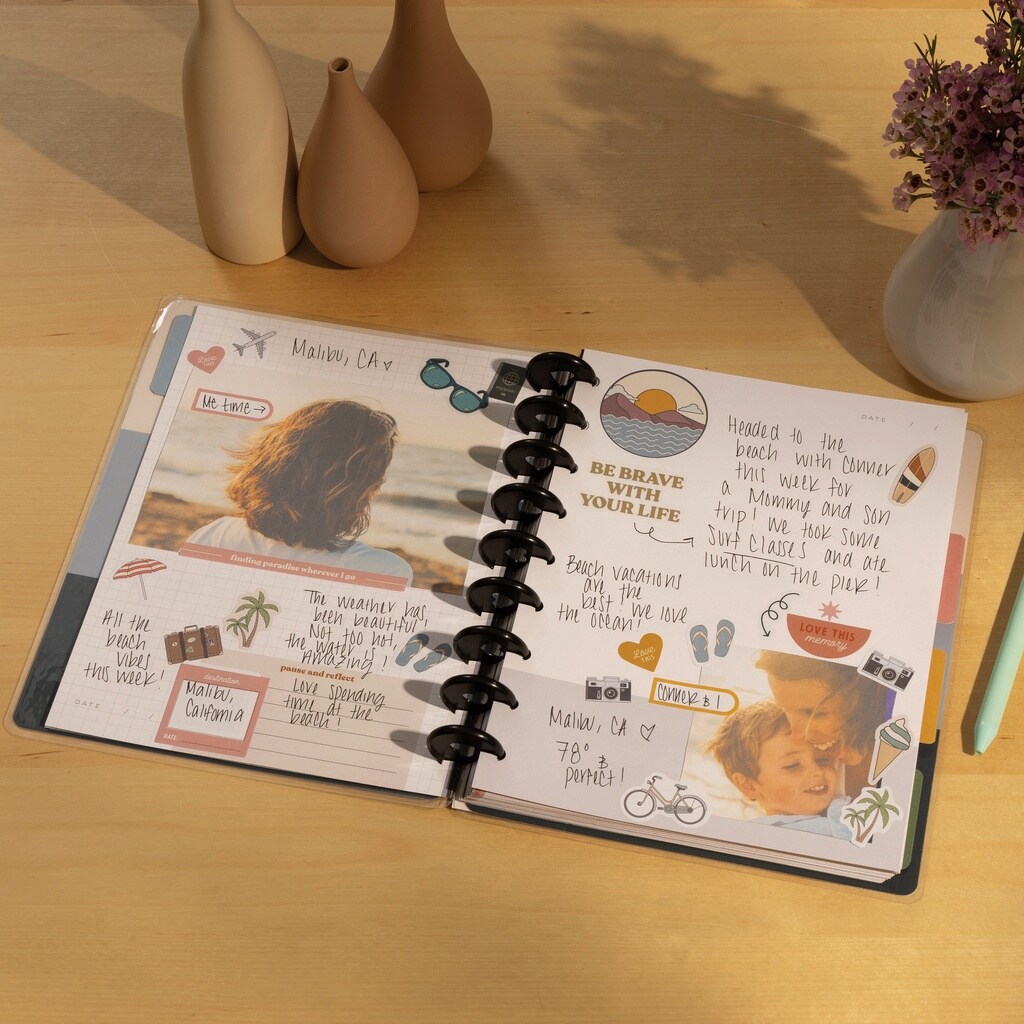 Malibu, CA
Love
THIS
Me time →
finding paradise wherever i go
All the
beach
vibes
this week!
The weather has
been beautiful.
Not too hot,
the water is
Amazing!
pause and reflect
Love spending
time at the
beach!
destination
Malibu,
California
DATE:
DATE / /
BE BRAVE
WITH
YOUR LIFE
DATE / /
Headed to the
beach with Conner
this week for
a Mommy and son
trip! We took some
Surf Classes and ate
lunch on the pier!
Beach vacations
are the
best! We love
the ocean!
Love
THIS
LOVE THIS
memory
Conner & I
Malibu, CA
78° &
perfect!